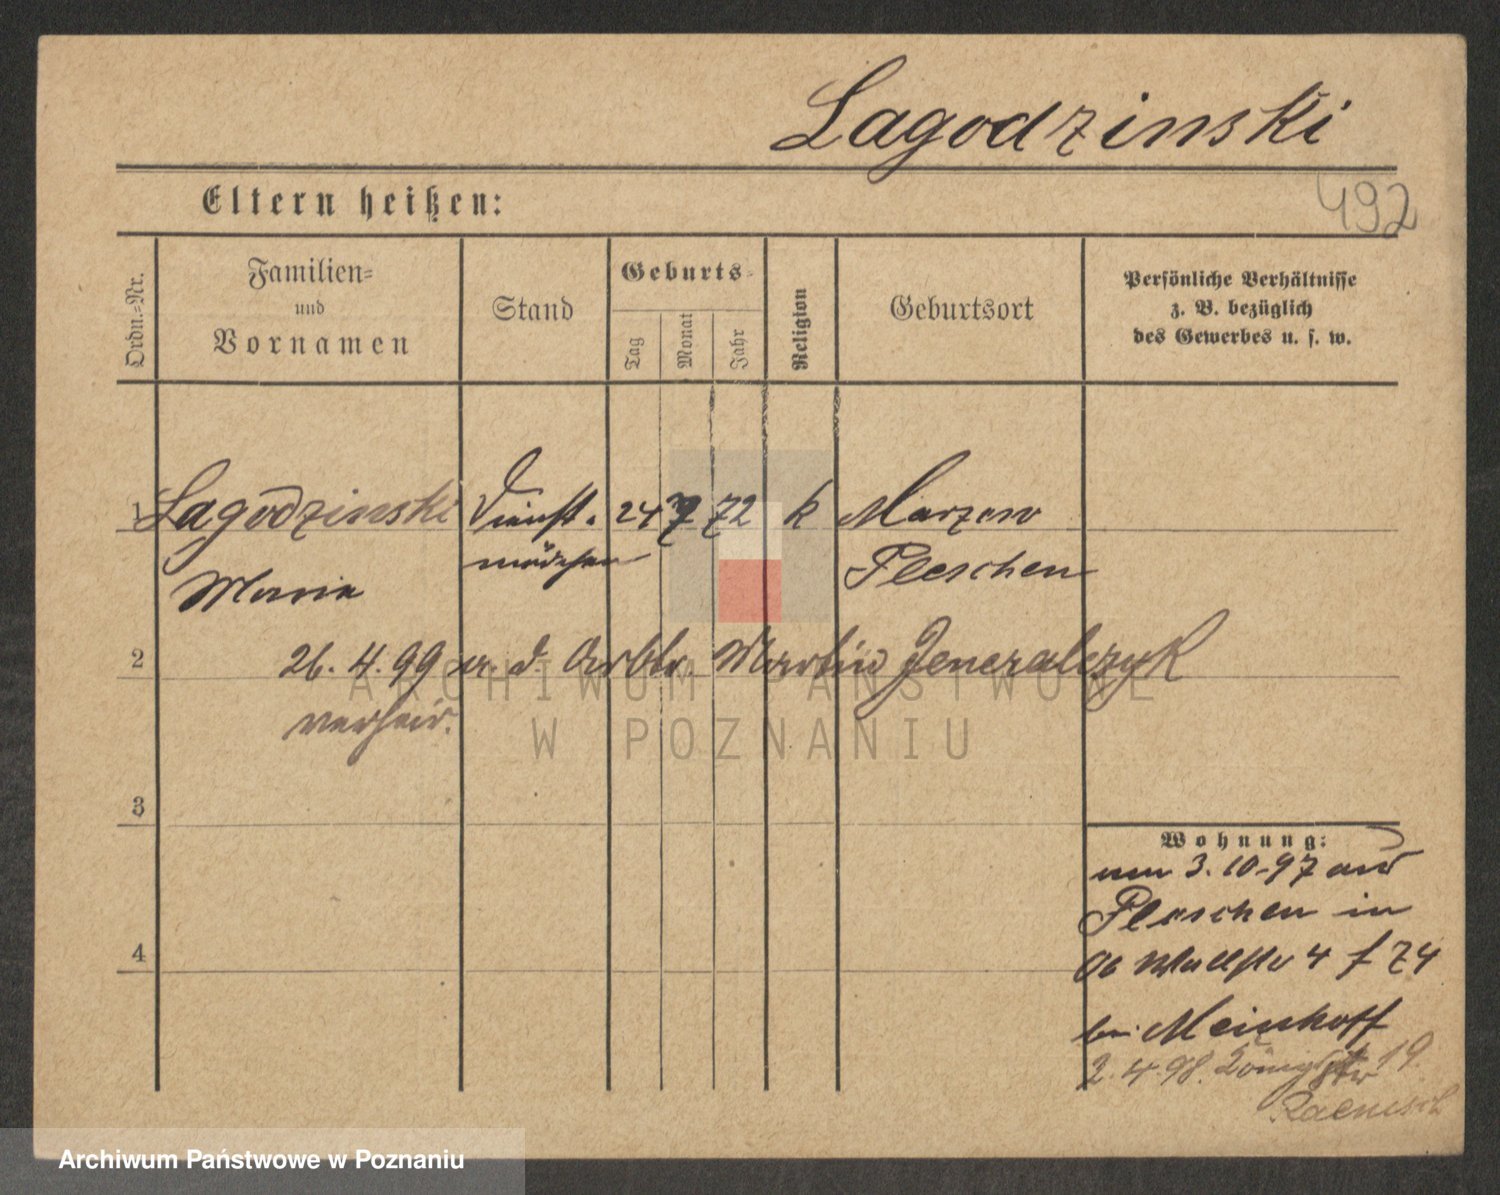 Lagodzinski
Eltern heißen:
492
Ordn.-Nr.
Familien-
und
Vornamen
Stand
Geburts-
Tag
Monat
Jahr
Religion
Geburtsort
Persönliche Verhältnisse
z. B. bezüglich
des Gewerbes u. s. w.
1 Lagodzinski Dienst- 24 7 72 k Marzew
mädchen Pleschen
Marie
2 26. 4. 99 m. d. Arbtr. Martin Jeneralczyk
verheir.
3
Wohnung:
um 3.10.97 aus
Pleschen in
Ob Wallstr 4 f 74
bei Meinhoff
4
2.4.98. Königstr 19.
ARCHIWUM PAŃSTWOWE
W POZNANIU
Archiwum Państwowe w Poznaniu